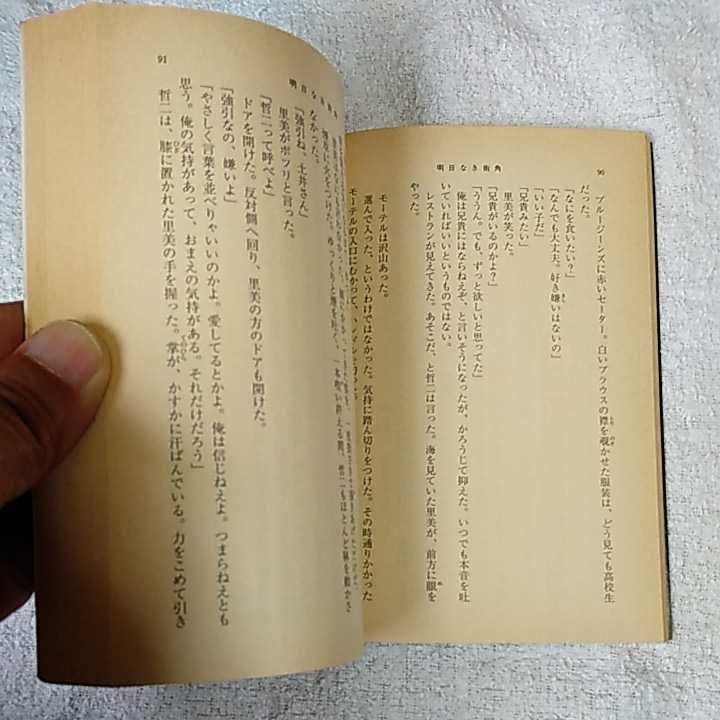 90
明日なき街角
ブルージーンズに赤いセーター。白いブラウスの襟を覗かせた服装は、どう見ても高校生
だった。
「なにを食いたい？」
「なんでも大丈夫。好き嫌いはないの」
「いい子だ」
「兄貴みたい」
里美が笑った。
「兄貴がいるのかよ？」
「ううん。でも、ずっと欲しいと思ってた」
俺は兄貴にはならねえぞ、と言いそうになったが、かろうじて抑えた。いつでも本音を吐
いていればいいというものではない。
レストランが見えてきた。あそこだ、と哲二は言った。海を見ていた里美が、前方に眼を
やった。
モーテルは沢山あった。
選んで入った、というわけではなかった。気持に踏ん切りをつけた。その時通りかかった
モーテルの入口にむかって、ハンドルを切った。
91
明日なき街角
煙草に火をつけた。ゆっくりと煙を吐く。一本喫い終える間、哲二もほとんど躰を動かさ
なかった。
「強引ね、土井さん」
里美がポツリと言った。
「哲二って呼べよ」
ドアを開けた。反対側へ回り、里美の方のドアも開けた。
「強引なの、嫌いよ」
「やさしく言葉を並べりゃいいのかよ。愛してるとかよ。俺は信じねえよ。つまらねえとも
思う。俺の気持があって、おまえの気持がある。それだけだろう」
哲二は、膝に置かれた里美の手を握った。掌が、かすかに汗ばんでいる。力をこめて引き